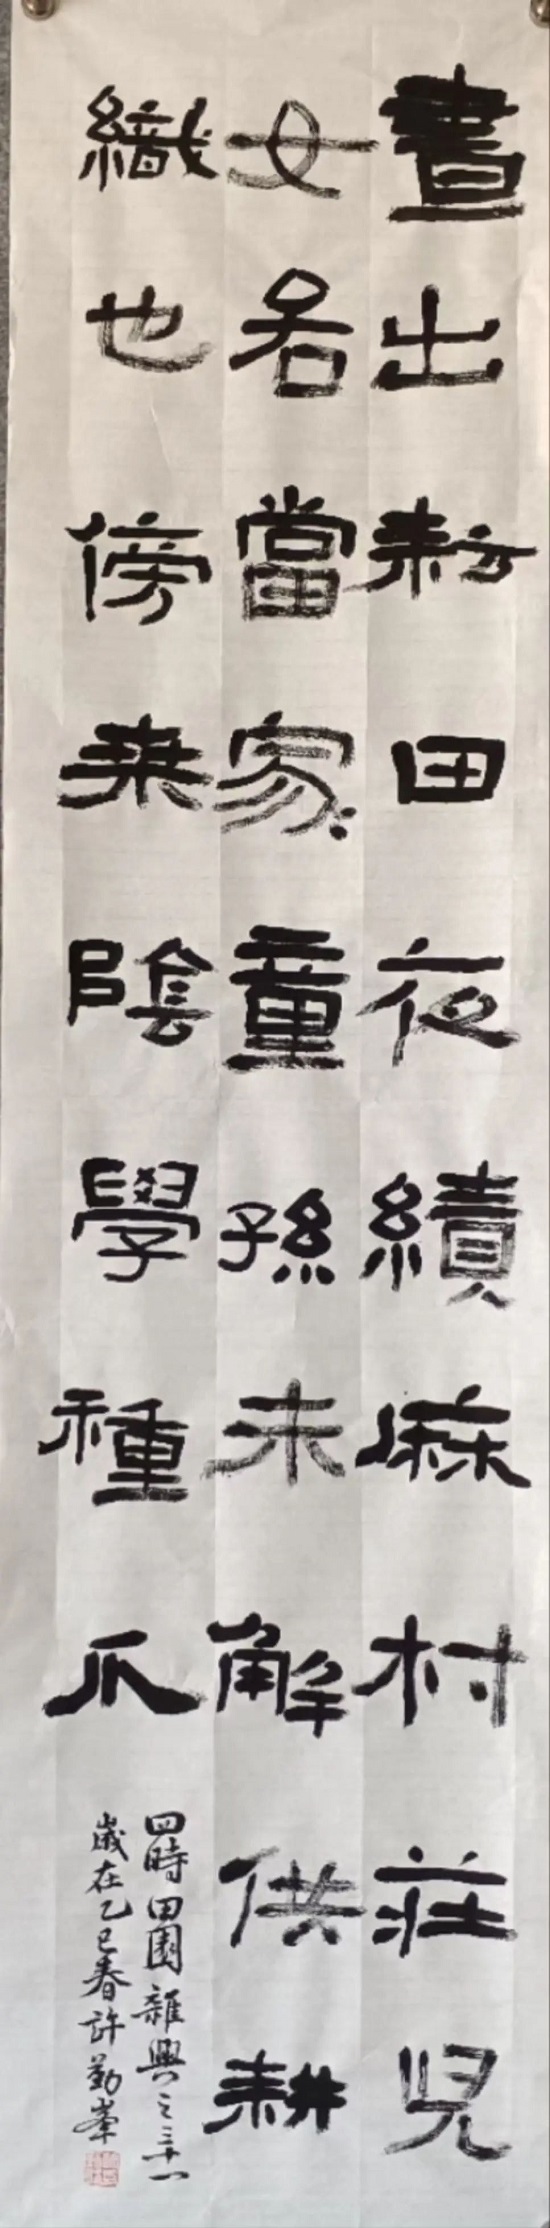 晝出耘田夜績麻村莊児
女各當家童孫未解供耕
織也傍桒陰學種瓜
四時田園雜興之三十一
歲在乙巳春許勤峯